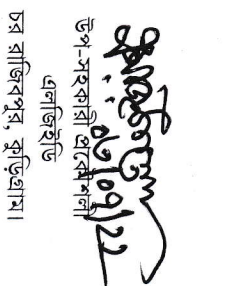 উপ-সহকারি প্রকৌশলী
এলজিইডি
চর রাজিবপুর, কুড়িগ্রাম।